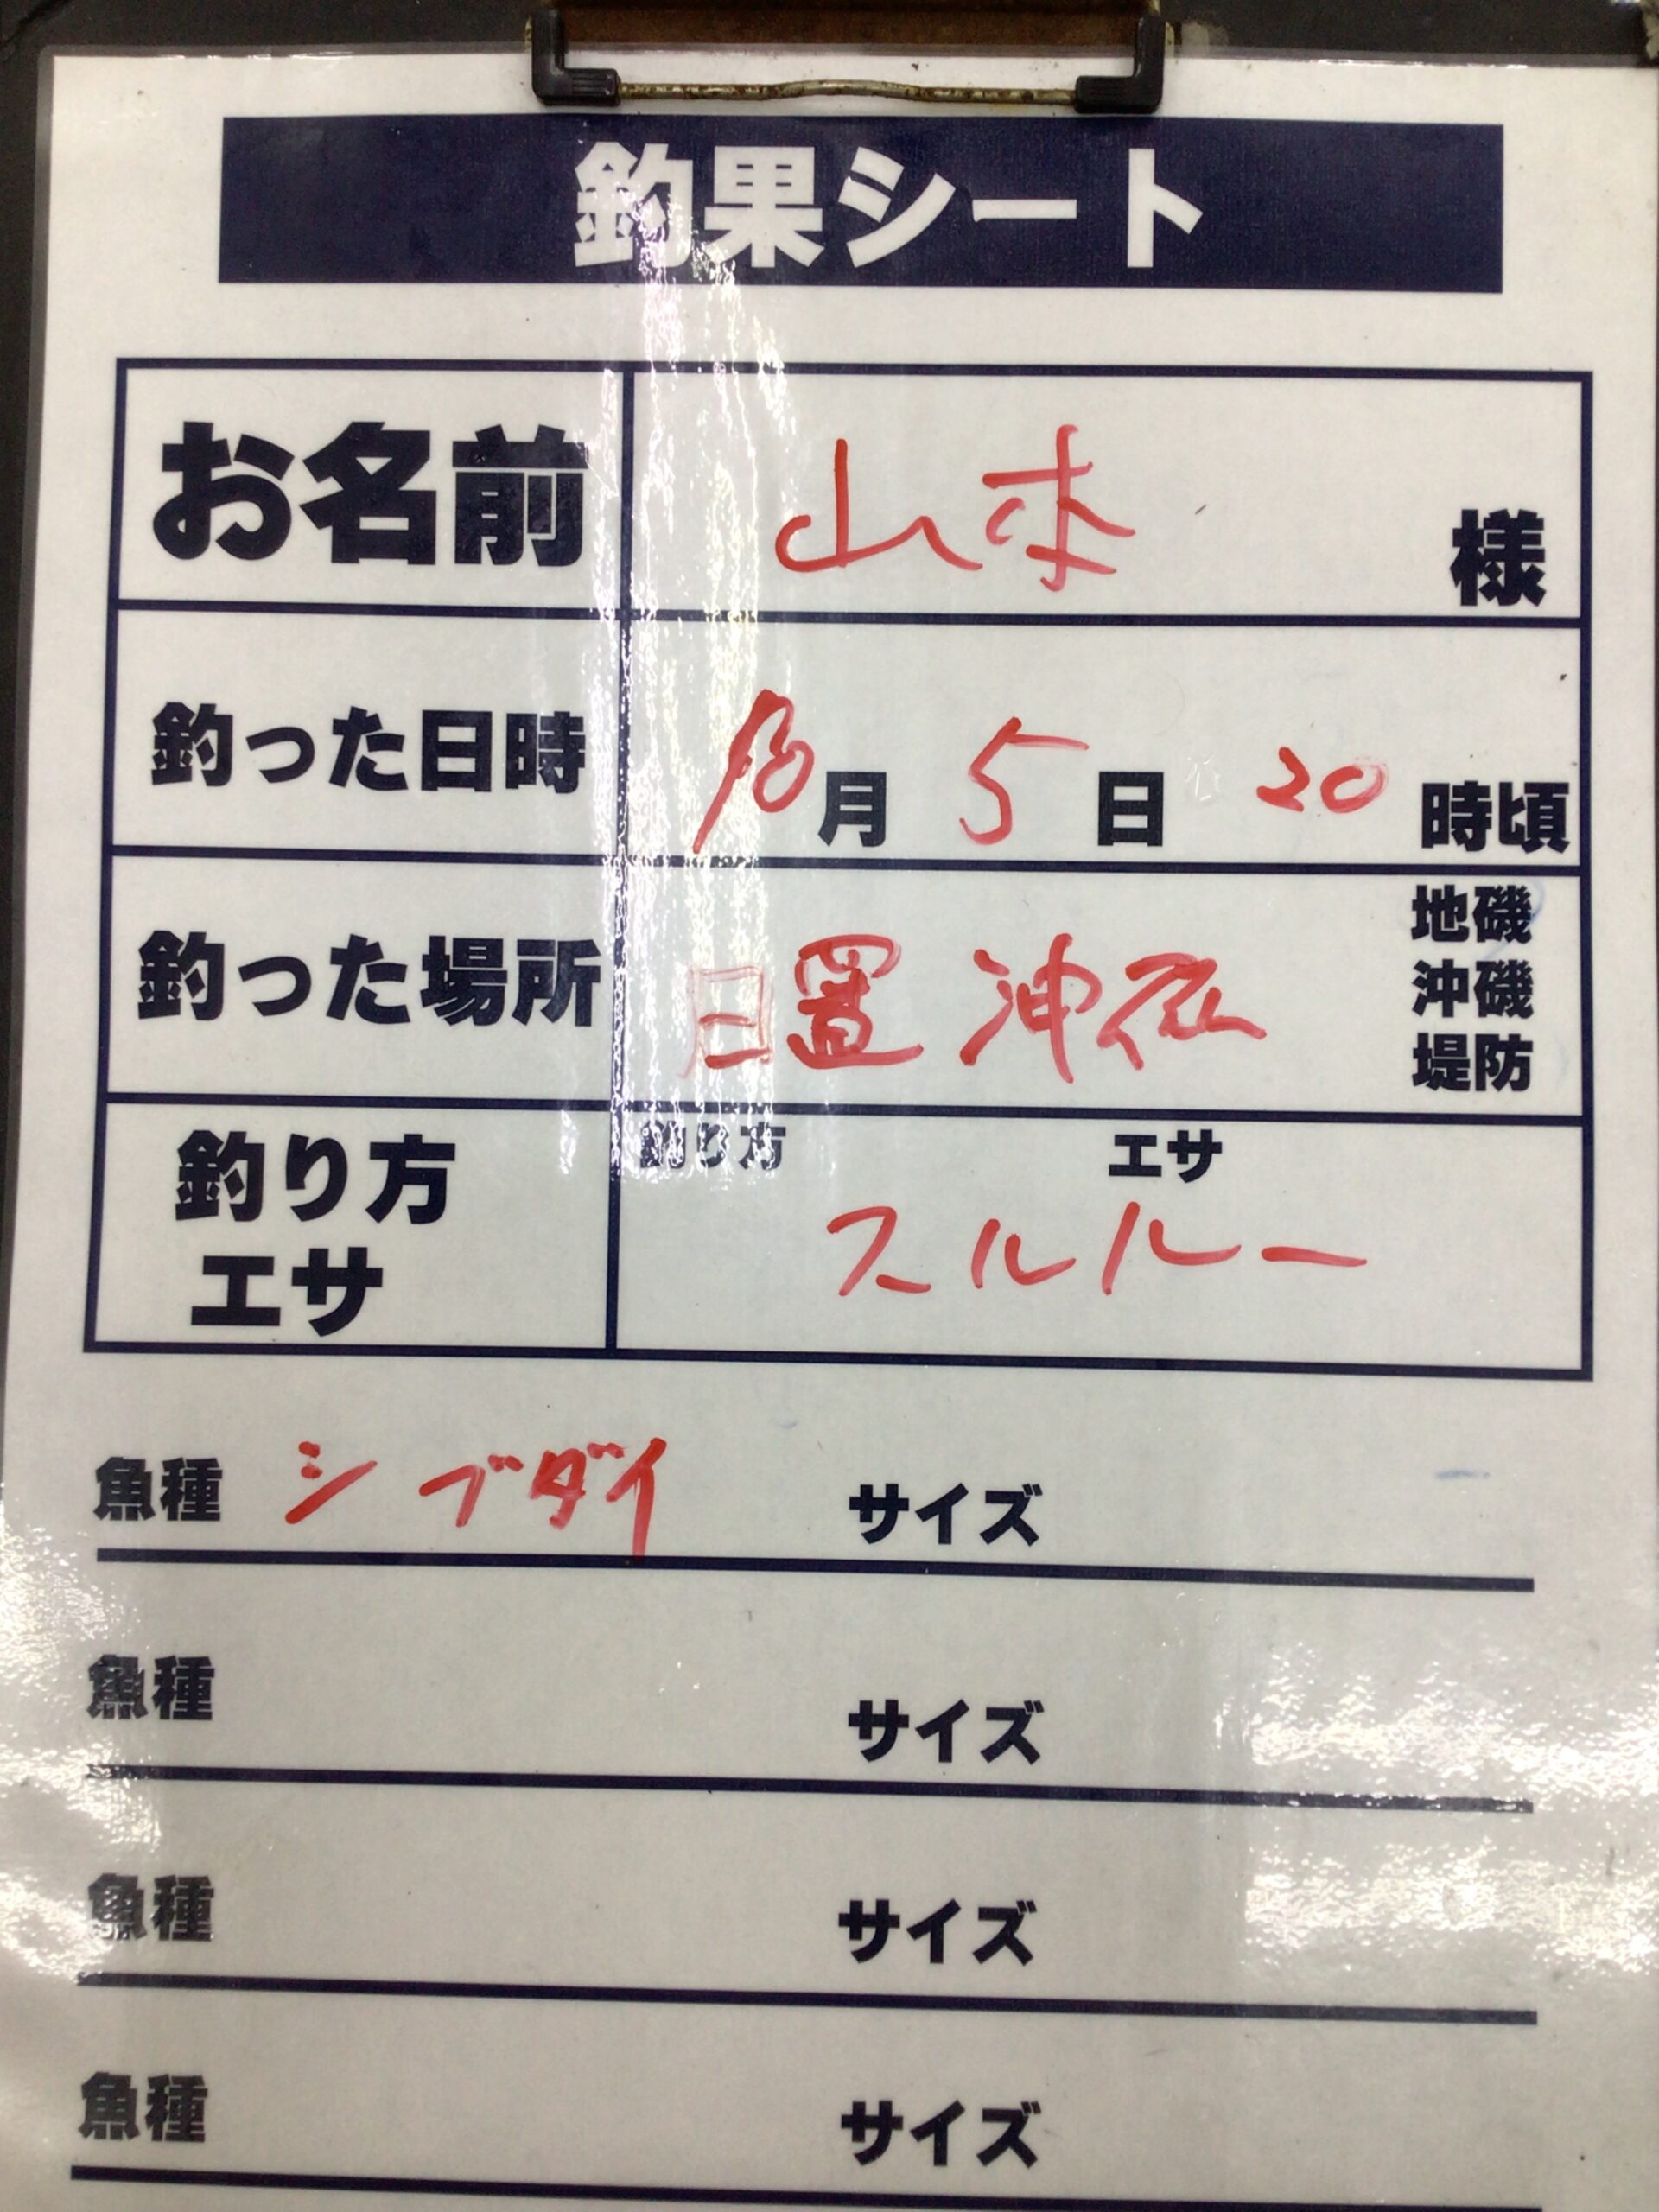 釣果シート
お名前 山本 様
釣った日時 10月 5日 20時頃
釣った場所 日置 沖磯 地磯
沖磯
堤防
釣り方 釣り方 エサ
エサ スルルー
魚種 シブダイ サイズ
魚種 サイズ
魚種 サイズ
魚種 サイズ